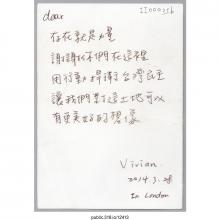 II000256
dear
存在就是力量
謝謝你們在這裡
用行動捍衛台灣民主
讓我們對這土地可以
有更美好的想像
Vivian
2014.3.28
In London
public.318.io/12413